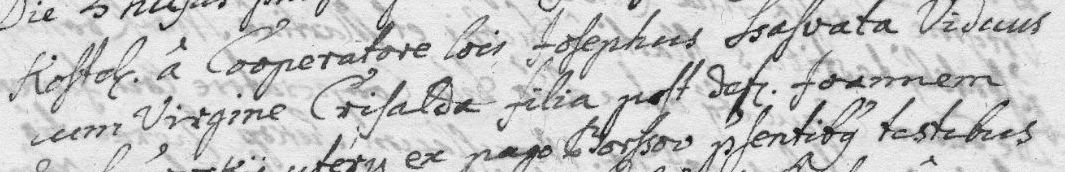 Die
Kostel. â Cooperatore loci Josephus Ssasvata Viduus
cum Virgine Crisalda filia post def. Joannem
uterq ex pago Borssov psentibq testibus